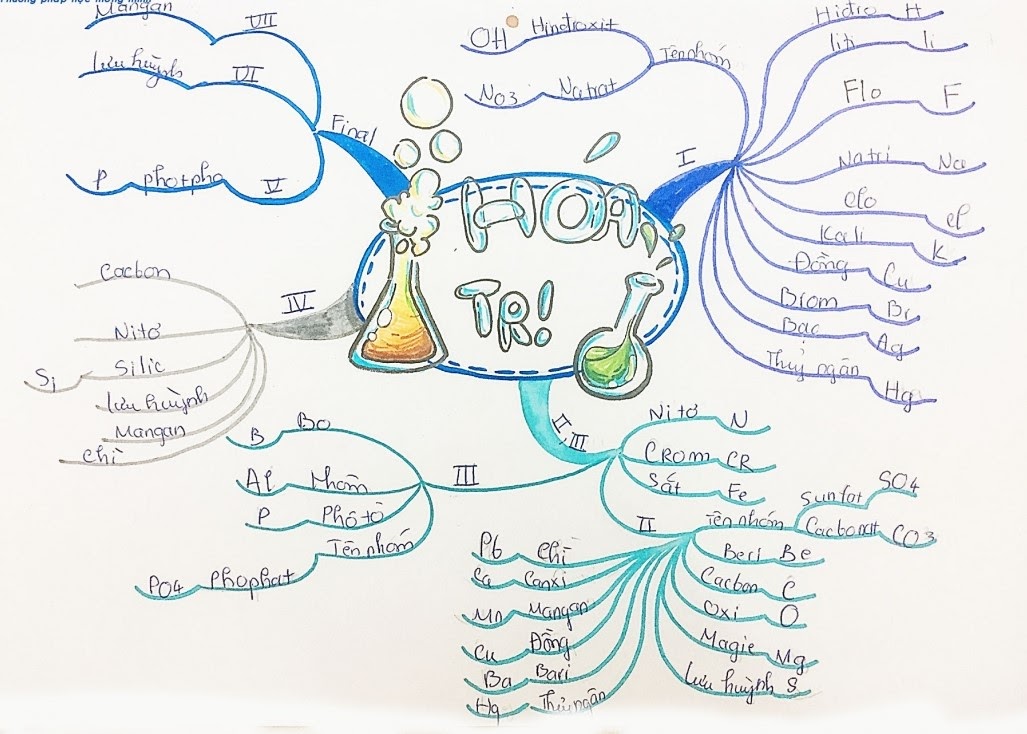 Phương pháp học thông minh
HOÁ
TRỊ!
I
Hiđro H
liti li
Flo F
Natri Na
clo cl
Kali K
Đồng Cu
Brom Br
Bạc Ag
Thuỷ ngân Hg
Tên nhóm
OH Hiđroxit
NO3 Natrat
II, III
Nitơ N
CRom CR
Sắt Fe
II
Tên nhóm
Sunfat SO4
Cacbonat CO3
Beri Be
Cacbon C
Oxi O
Magie Mg
Lưu huỳnh S
Pb chì
Ca Canxi
Mn Mangan
Cu Đồng
Ba Bari
Hg Thủy ngân
III
B Bo
Al Nhôm
P Phôtô
Tên nhóm
PO4 Phophat
IV
Cacbon
Nitơ
Si Silic
lưu huỳnh
Mangan
chì
Final
Mangan VII
Lưu huỳnh VI
P photpho V